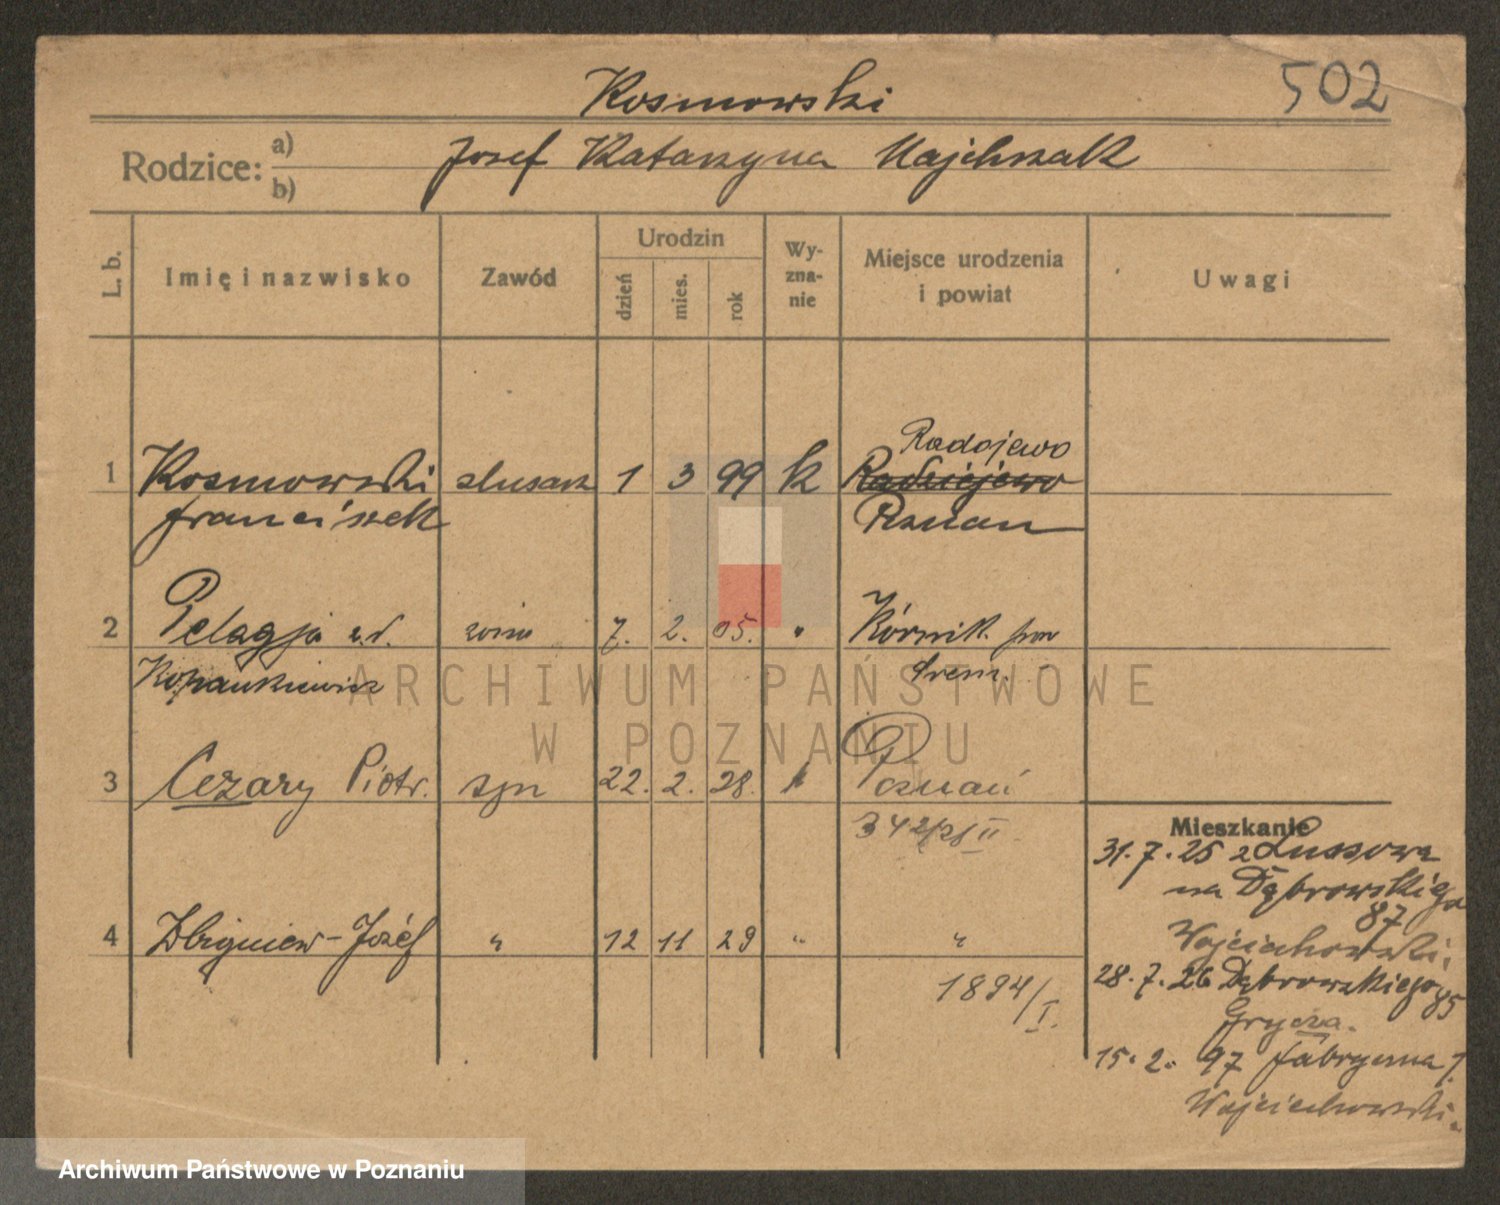 Kosmowski
502
Rodzice: a) Josef Katarzyna Majchrzak
b)
L. b.
Imię i nazwisko
Zawód
Urodzin
dzień
mies.
rok
Wy-
zna-
nie
Miejsce urodzenia
i powiat
Uwagi
Radojewo
1 Kosmowski slusarz 1 3 99 k Radziejewo
franciszek Poznan
2 Pelagja z d. żona 7. 2. 05. " Kórnik pow
Kopankiewicz Śrem.
3 Cezary Piotr. syn 22. 2. 28. k Poznań
342/28 II
4 Zbigniew-Józef " 12 11 29 " "
1894/I.
Mieszkanie
31.7.25 z Lussowa
na Dąbrowskiego
87
Wojciechowski.
28.7.26 Dąbrowskiego 85
Grycza.
15.2. 97 Fabryczna
Wojciechowski.
ARCHIWUM PAŃSTWOWE
W POZNANIU
Archiwum Państwowe w Poznaniu